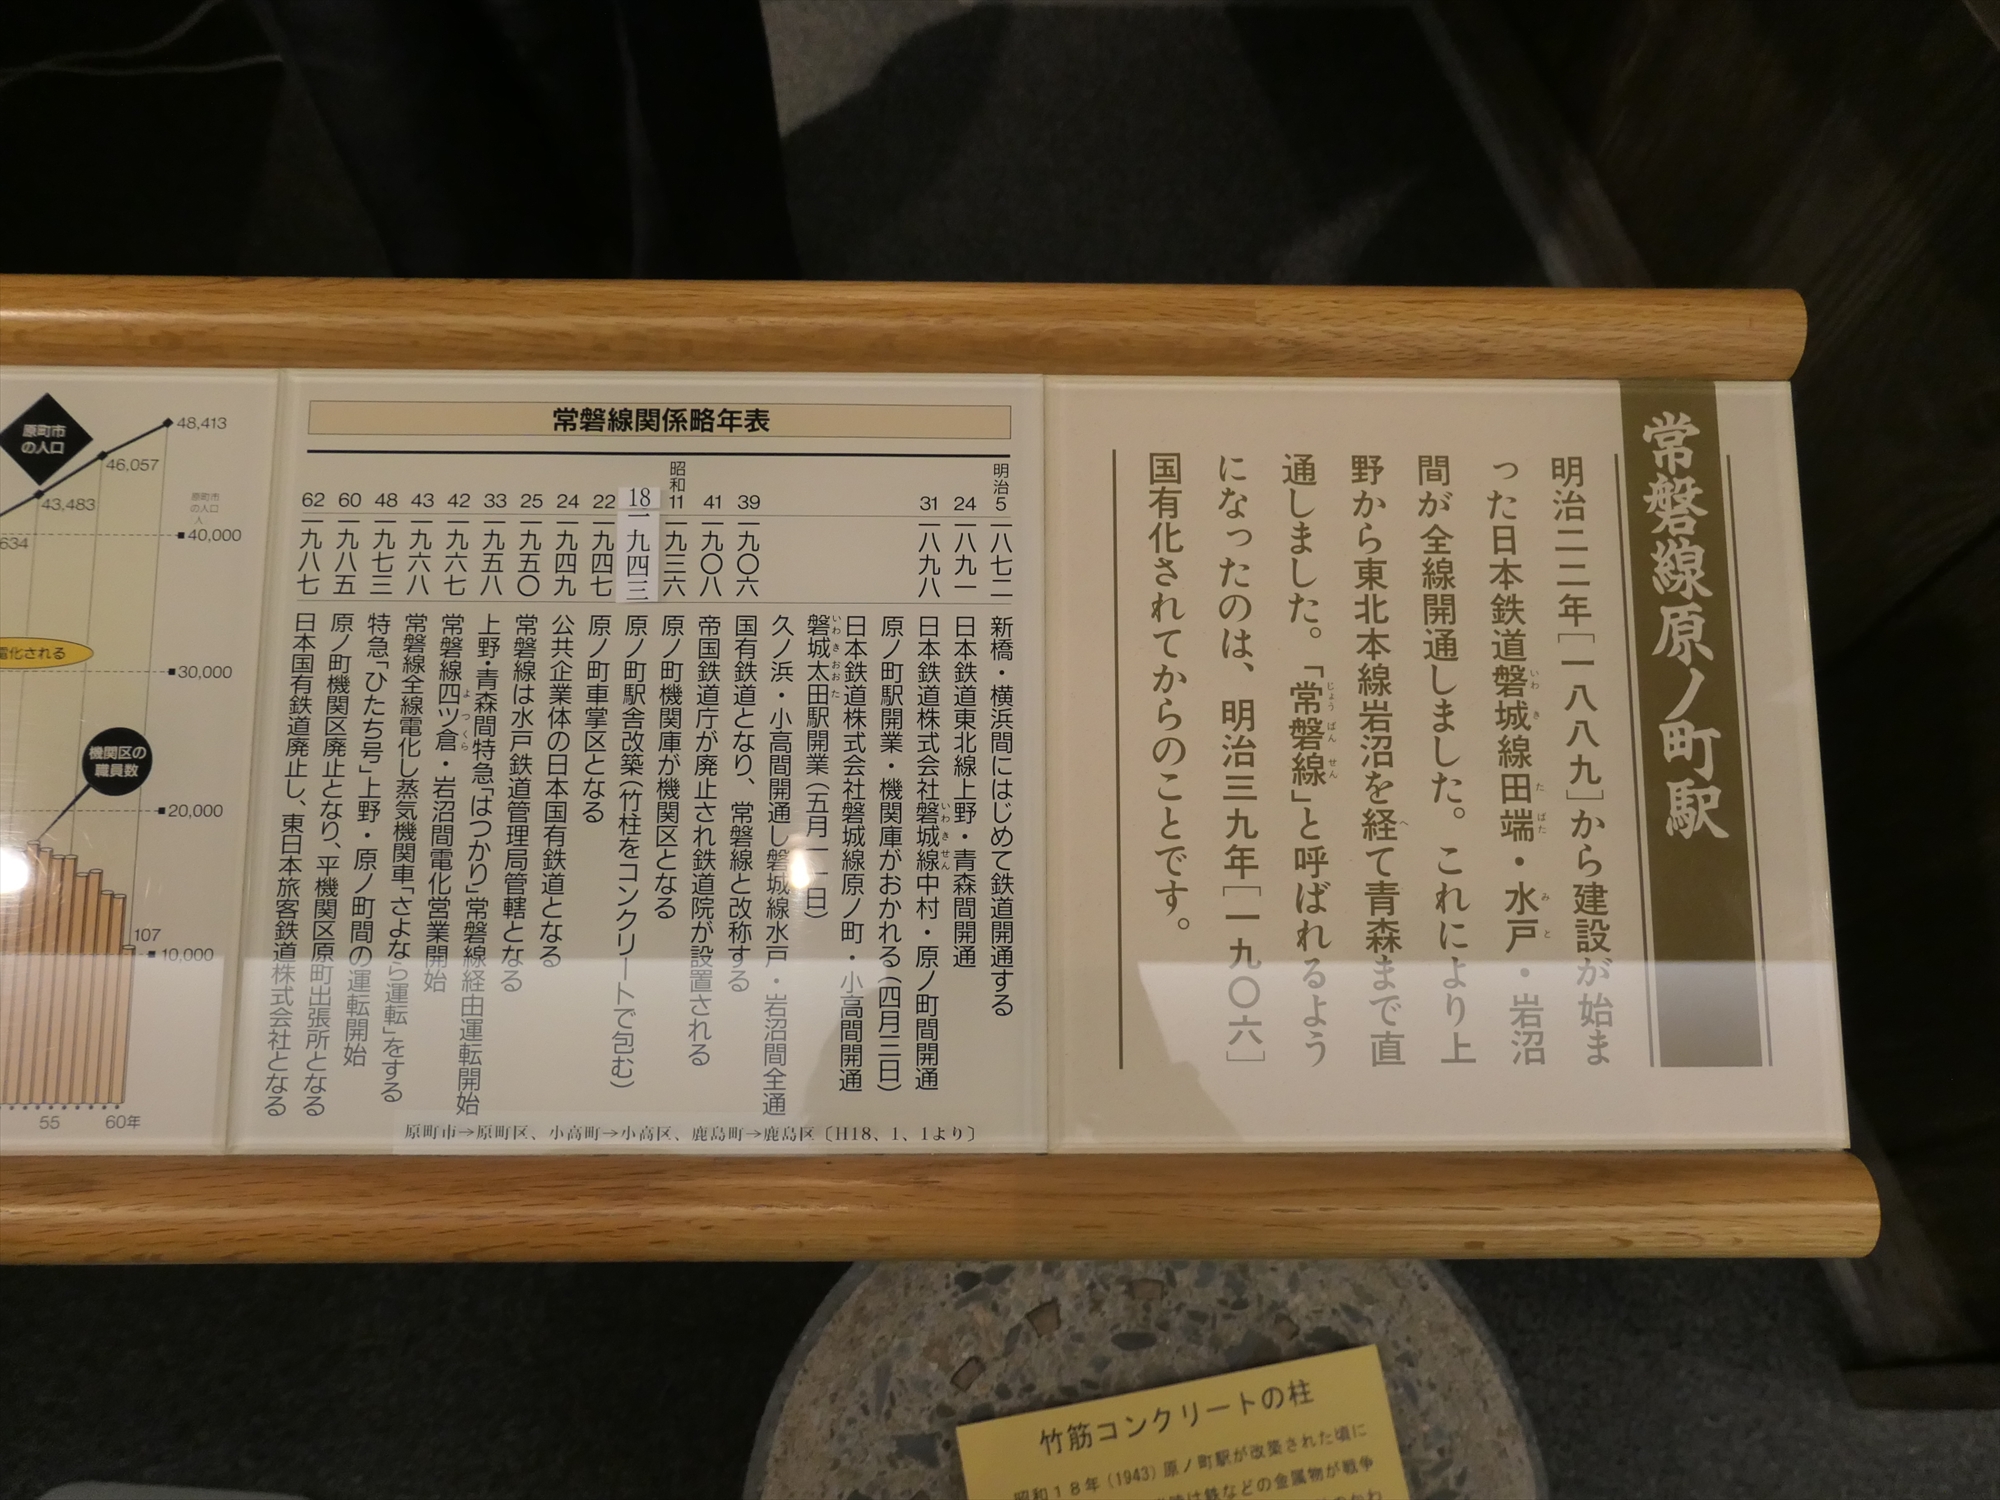 常磐線原ノ町駅
明治二二年[一八八九]から建設が始ま
った日本鉄道磐城線田端・水戸・岩沼
間が全線開通しました。これにより上
野から東北本線岩沼を経て青森まで直
通しました。「常磐線」と呼ばれるよう
になったのは、明治三九年[一九〇六]
国有化されてからのことです。
常磐線関係略年表
明治5 一八七二 新橋・横浜間にはじめて鉄道開通する
24 一八九一 日本鉄道東北線上野・青森間開通
31 一八九八 日本鉄道株式会社磐城線中村・原ノ町間開通
原ノ町駅開業・機関庫がおかれる(四月三日)
日本鉄道株式会社磐城線原ノ町・小高間開通
磐城太田駅開業(五月一一日)
久ノ浜・小高間開通し磐城線水戸・岩沼間全通
39 一九〇六 国有鉄道となり、常磐線と改称する
41 一九〇八 帝国鉄道庁が廃止され鉄道院が設置される
昭和11 一九三六 原ノ町機関庫が機関区となる
18 一九四三 原ノ町駅舎改築(竹柱をコンクリートで包む)
22 一九四七 原ノ町車掌区となる
24 一九四九 公共企業体の日本国有鉄道となる
25 一九五〇 常磐線は水戸鉄道管理局管轄となる
33 一九五八 上野・青森間特急「はつかり」常磐線経由運転開始
42 一九六七 常磐線四ツ倉・岩沼間電化営業開始
43 一九六八 常磐線全線電化し蒸気機関車「さよなら運転」をする
48 一九七三 特急「ひたち号」上野・原ノ町間の運転開始
60 一九八五 原ノ町機関区廃止となり、平機関区原町出張所となる
62 一九八七 日本国有鉄道廃止し、東日本旅客鉄道株式会社となる
原町市→原町区、小高町→小高区、鹿島町→鹿島区〔H18、1、1より〕
原町市
の人口
48,413
46,057
43,483
634
原町市
の人口
人
40,000
電化される
30,000
機関区の
職員数
20,000
107
10,000
55
60年
竹筋コンクリートの柱
昭和18年(1943)原ノ町駅が改築された頃に
は鉄などの金属物が戦争